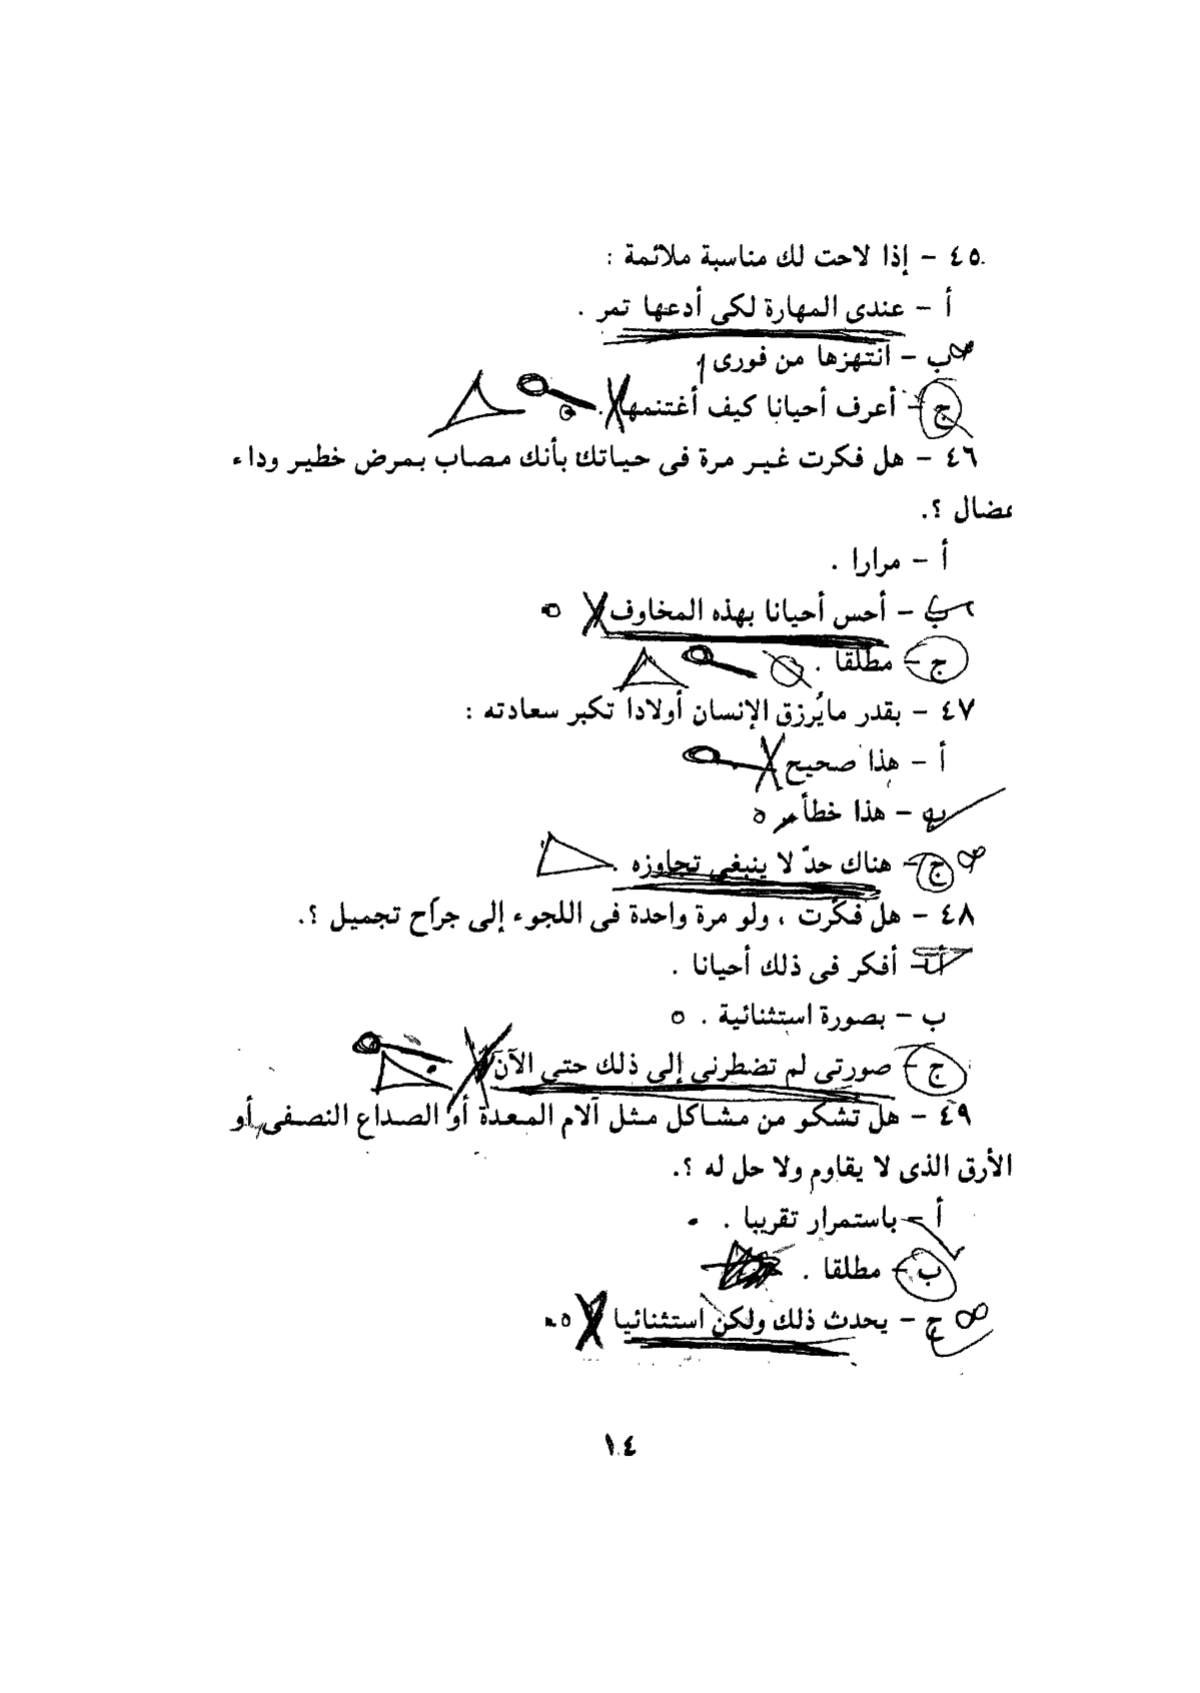 ٤٥ - إذا لاحت لك مناسبة ملائمة :
أ - عندى المهارة لكى أدعها تمر .
ب - انتهزها من فورى
ج - أعرف أحيانا كيف أغتنمها .
٤٦ - هل فكرت غير مرة فى حياتك بأنك مصاب بمرض خطير وداء
عضال ؟.
أ - مرارا .
ب - أحس أحيانا بهذه المخاوف
ج - مطلقا .
٤٧ - بقدر مايُرزق الإنسان أولادا تكبر سعادته :
أ - هذا صحيح
ب - هذا خطأ
ج - هناك حدّ لا ينبغى تجاوزه .
٤٨ - هل فكّرت ، ولو مرة واحدة فى اللجوء إلى جرّاح تجميل ؟.
أ - أفكر فى ذلك أحيانا .
ب - بصورة استثنائية .
ج - صورتى لم تضطرنى إلى ذلك حتى الآن
٤٩ - هل تشكو من مشاكل مثل آلام المعدة أو الصداع النصفى أو
الأرق الذى لا يقاوم ولا حل له ؟.
أ - باستمرار تقريبا .
ب - مطلقا .
ج - يحدث ذلك ولكن استثنائيا
١٤